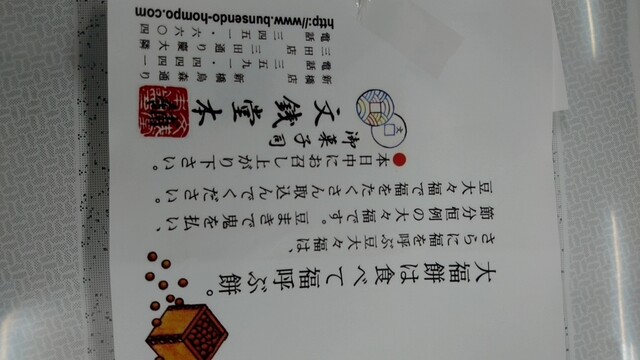 大福餅は食べて福呼ぶ餅。
さらに福を呼ぶ豆大々福は、
節分恒例の大福です。豆まきで鬼を払い、
豆大々福で福をたくさん取込んでください。
●本日中にお召し上がり下さい。
御菓子司
文銭堂本舗
新橋店 新橋烏森通り
電話 三五九一・四四四一
三田店 三田通り慶大隣
電話 三四五一・六六〇四
http://www.bunsendo-hompo.com